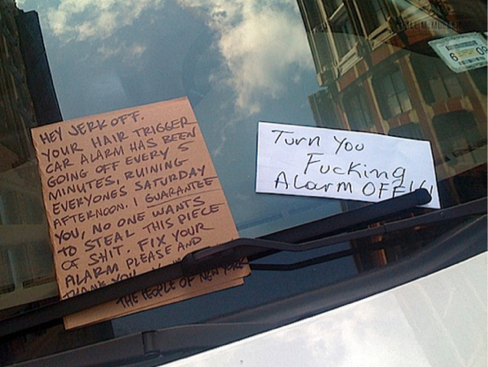 HEY JERKOFF.
YOUR HAIR TRIGGER
CAR ALARM HAS BEEN
GOING OFF EVERY 5
MINUTES, RUINING
EVERYONES SATURDAY
AFTERNOON. I GUARANTEE
YOU, NO ONE WANTS
TO STEAL THIS PIECE
OF SHIT. FIX YOUR
ALARM PLEASE AND
THANK YOU.
THE PEOPLE OF NEW YORK
Turn You
Fucking
Alarm OFF!!!
6 09